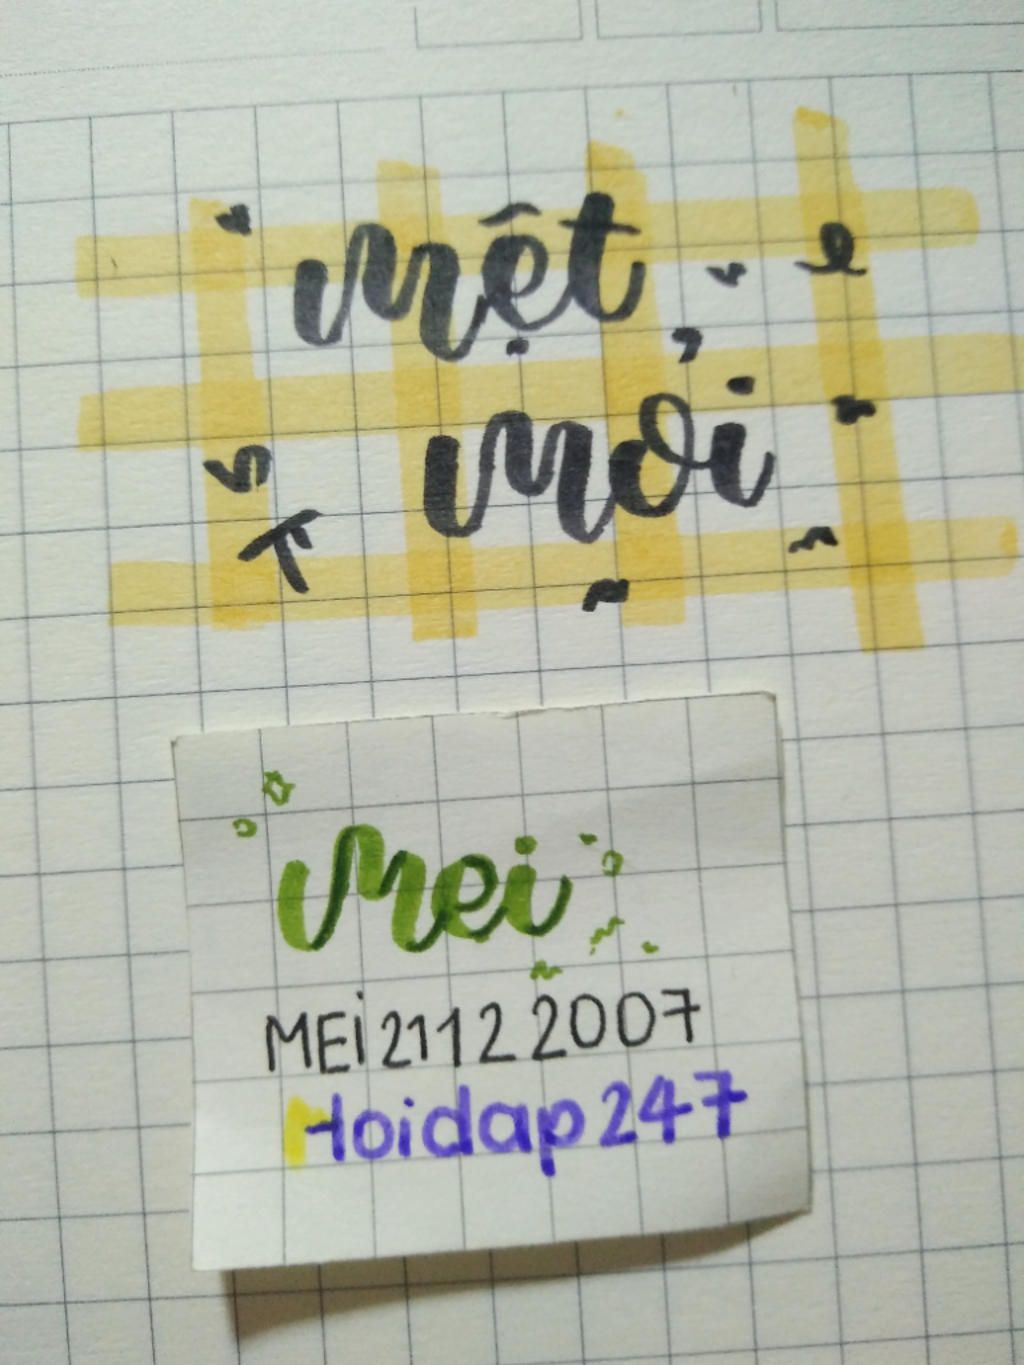 mệt
mỏi
Mei
MEi 2112 2007
Hoidap247